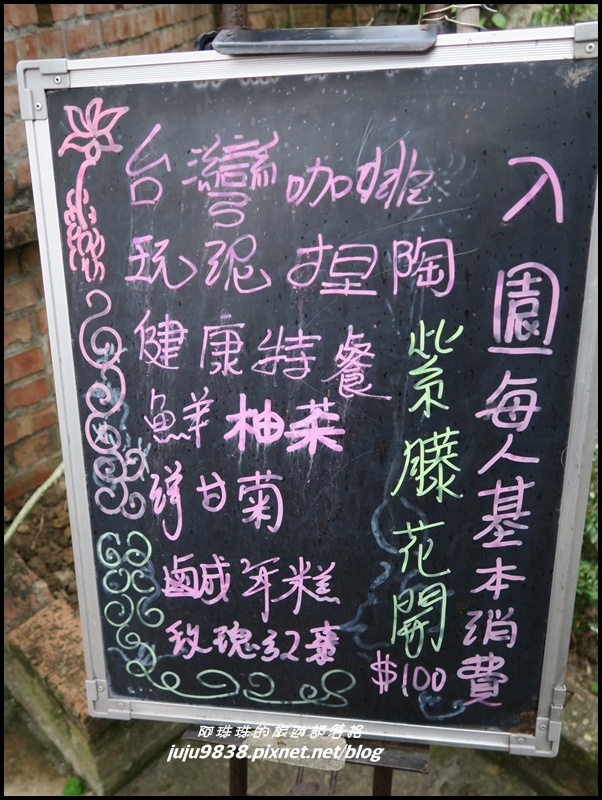 入園每人基本消費
$100
紫藤花開
台灣咖啡
玩泥捏陶
健康特餐
鮮柚茶
洋甘菊
鹹年糕
玫瑰紅棗
阿珠珠的旅遊部落格
juju9838.pixnet.net/blog